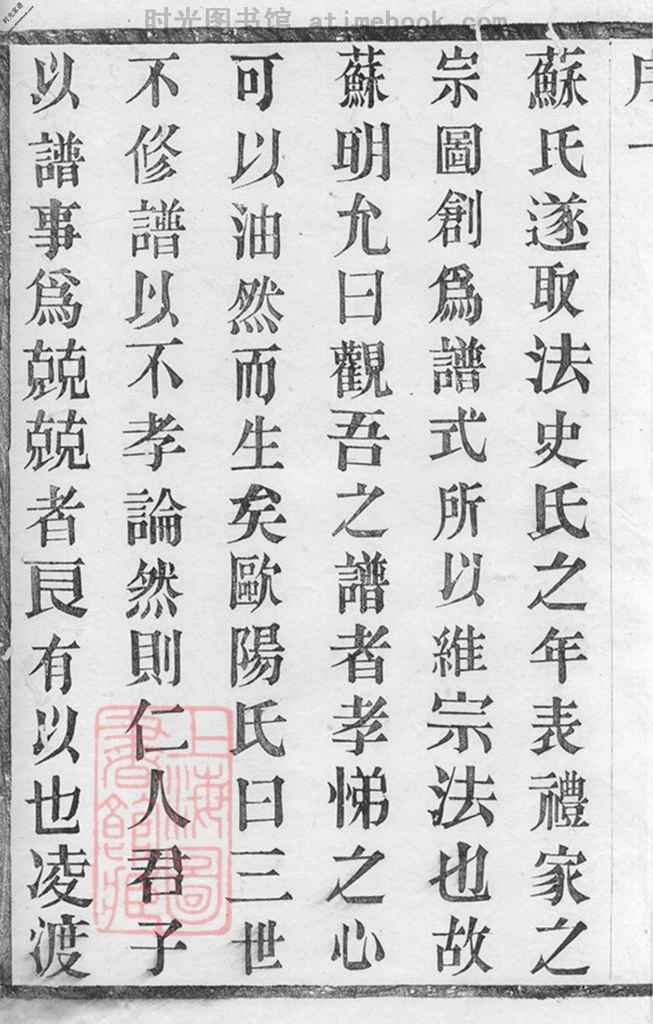 时光图书馆 atimebook.com
蘇氏遂取法史氏之年表禮家之
宗圖創爲譜式所以維宗法也故
蘇明允曰觀吾之譜者孝悌之心
可以油然而生矣歐陽氏曰三世
不修譜以不孝論然則仁人君子
以譜事爲兢兢者良有以也凌渡
上海圖
書館藏